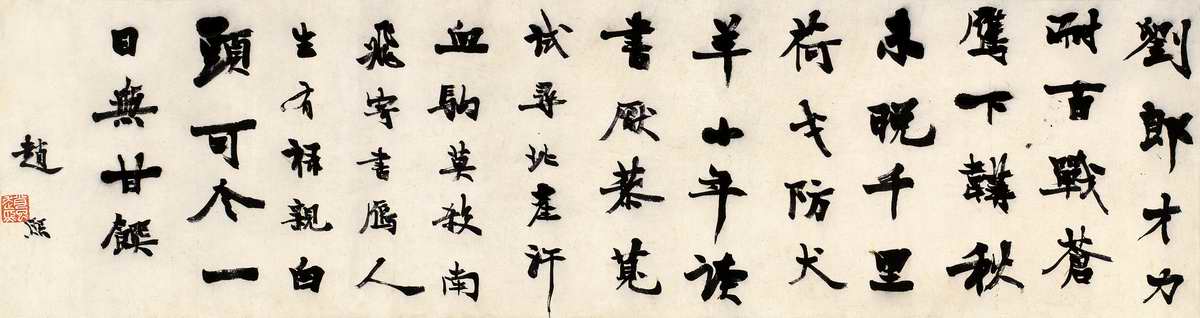 劉郎才力
耐百戰蒼
鷹下韝秋
未晚千里
荷戈防犬
羊小年讀
書厭藜莧
試尋北產汗
血駒莫殺南
飛寄書鴈人
生有祿親白
頭可令一
日無甘饌
趙熙